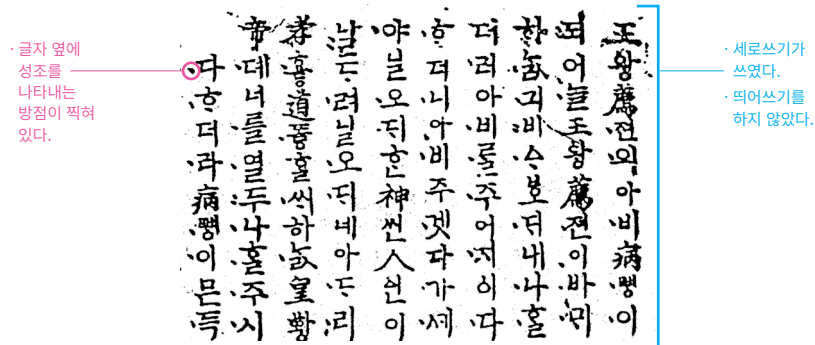 · 글자 옆에
성조를
나타내는
방점이 찍혀
있다.
王왕薦젼의아비病뼝이
되어늘王왕薦젼이바ᄆᆡ
하ᄂᆞᆳ긔비ᅀᆞᄫᅩᄃᆡ내나ᄒᆞᆯ
더러아비ᄅᆞᆯ주어지이다
ᄒᆞ더니아비주겟다가ᄭᆡ
야닐오ᄃᆡᄒᆞᆫ神씬人ᅀᅵᆫ이
날ᄃᆞ려닐오ᄃᆡ네아ᄃᆞ리
孝효ᇢ道도ᇢᄒᆞᆯᄊᆡ하ᄂᆞᆳ皇황
帝뎨너를열두나ᄒᆞᆯ주시
다ᄒᆞ더라病뼝이믄득
· 세로쓰기가
쓰였다.
· 띄어쓰기를
하지 않았다.